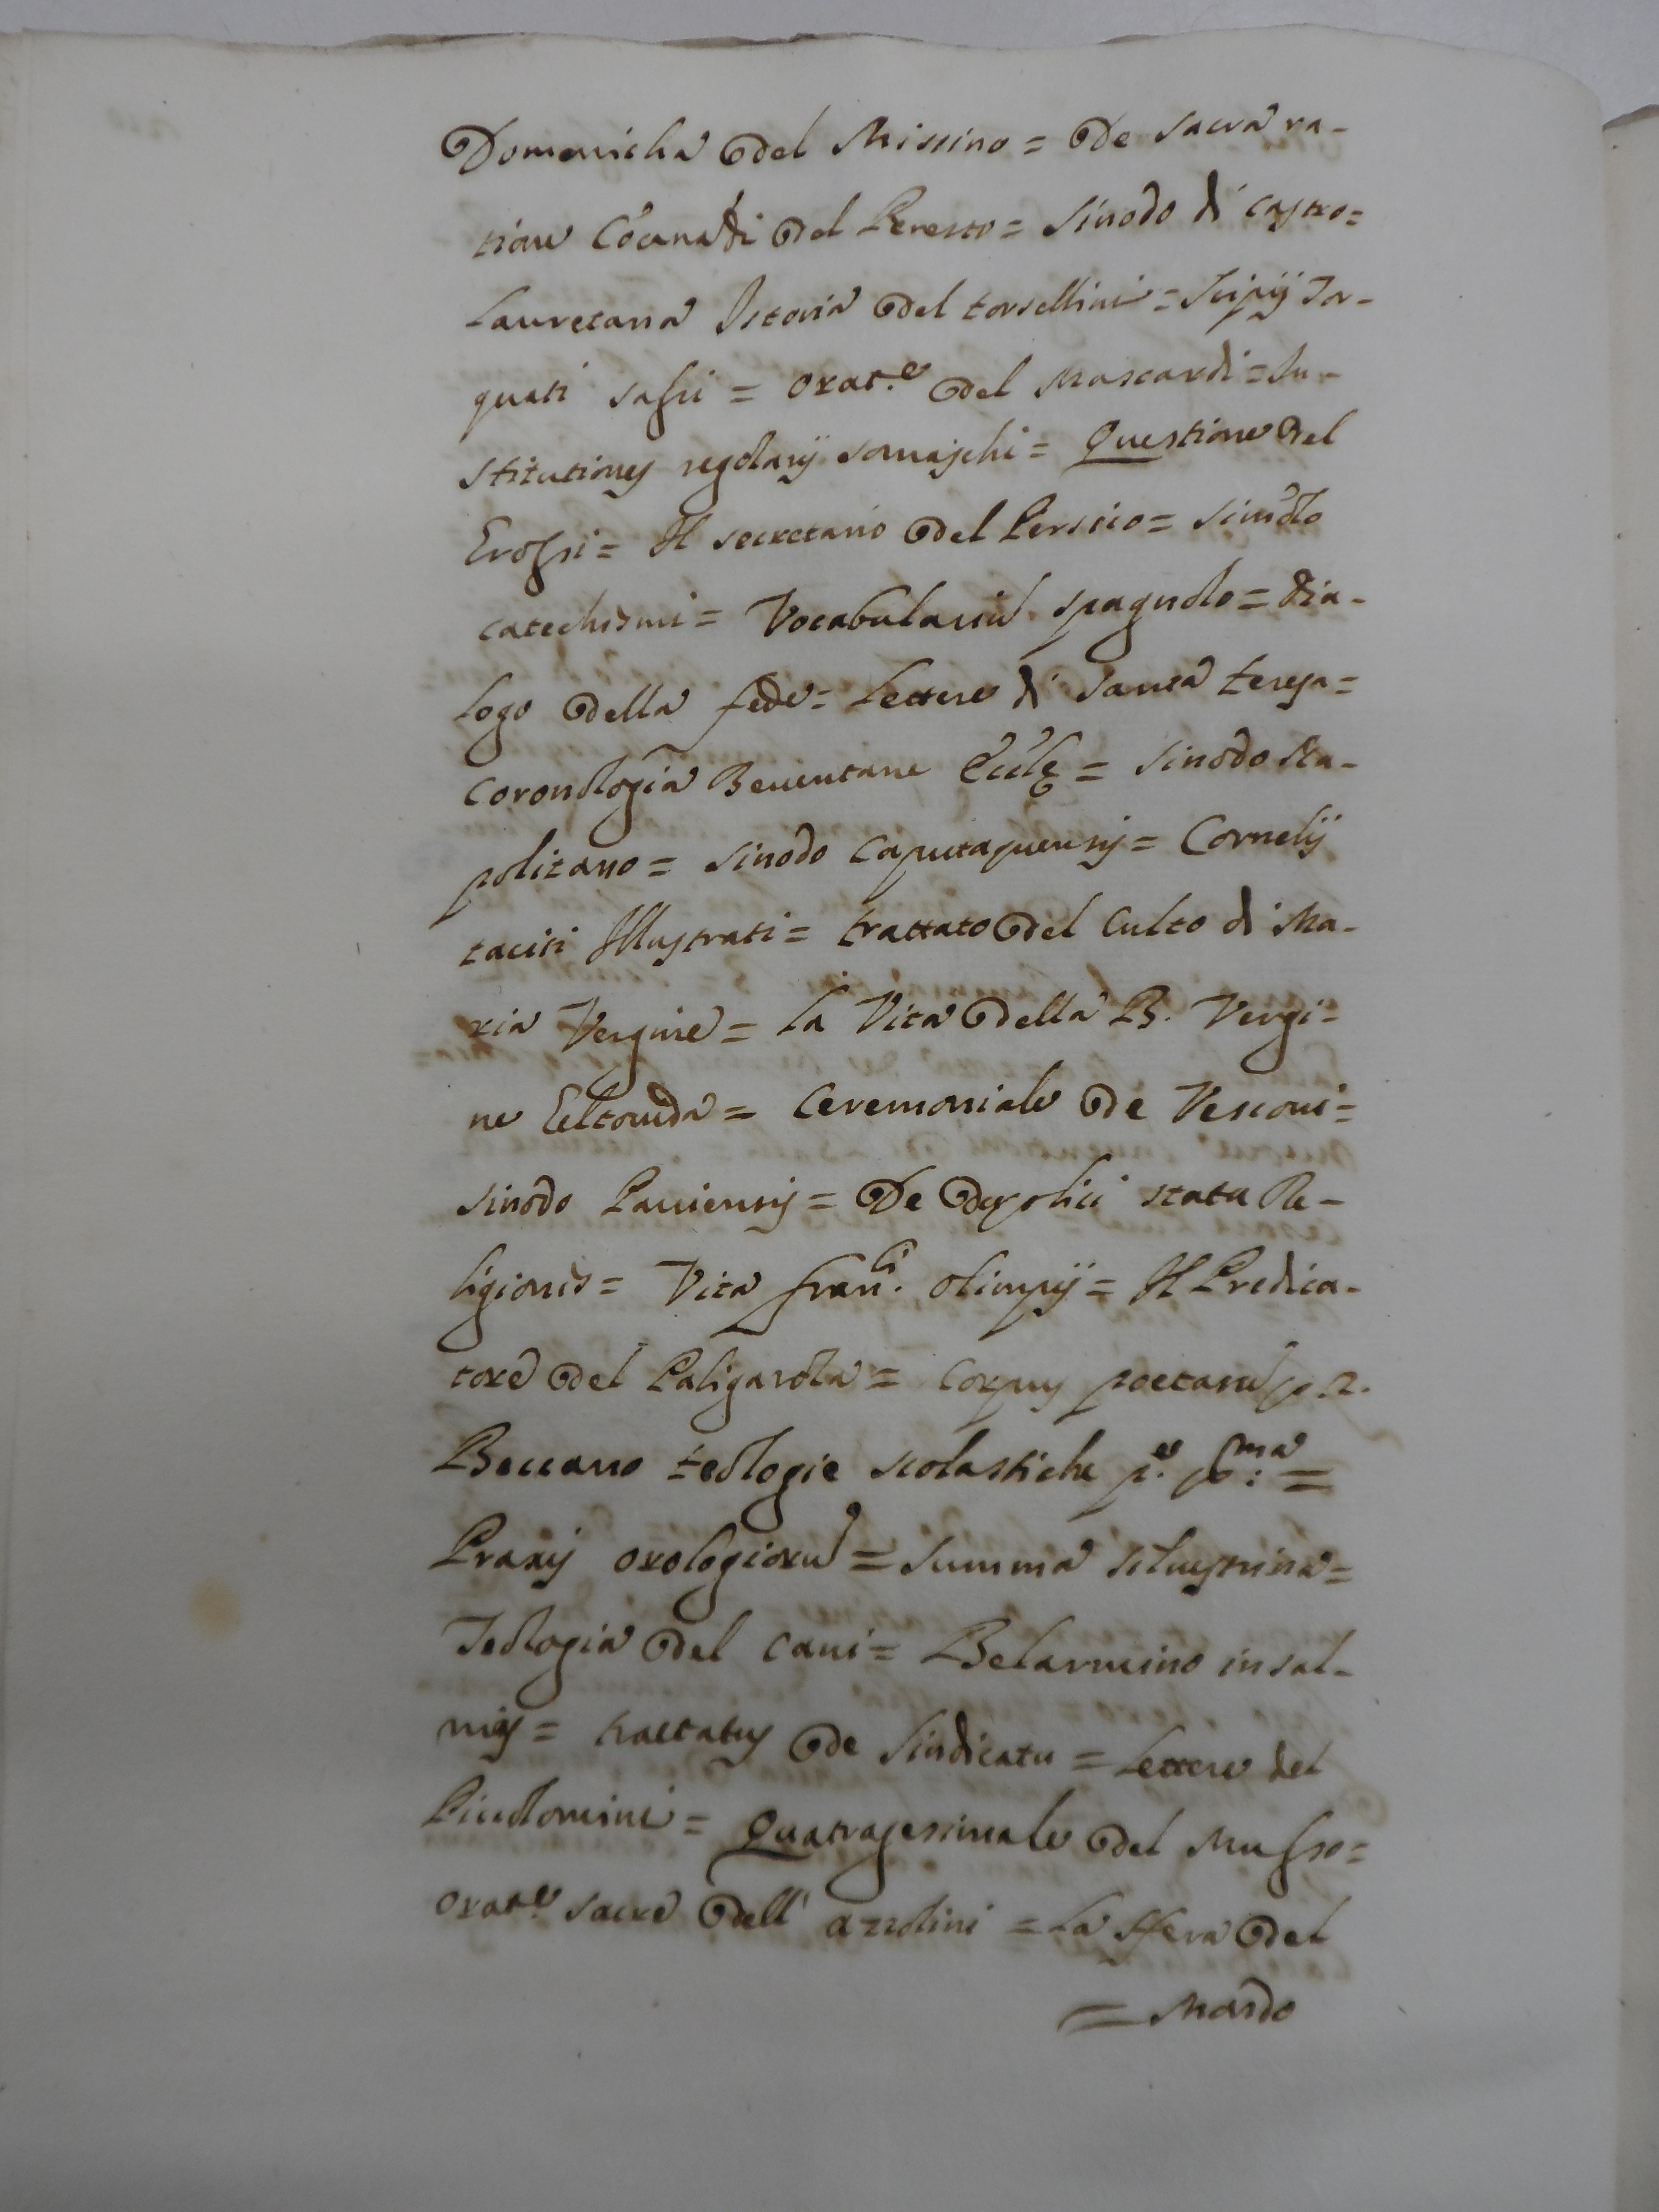 Domenicha del Missino = De sacra ra-
tione Cõcinadi del Peresto = Sinodo di Castro =
Lauretana Istoria del torsellini = Scipij Tor-
quati sassi = orat.e del Mascardi = In-
stitutiones regolarij somaschi = Questione del
Erossi = Il secretario del Persico =
catechismi = Vocabulariũ spagnolo = dia-
logo della fede = Lettere di santa teresa =
Coronologia Beneventane Ecclę = Sinodo Na-
politano = Sinodo Caputaquensis = Cornelij
taciti Illustrati = trattato del Culto di Ma-
ria Vergine = La Vita della B. Vergi-
ne = Ceremoniale de Vescovi =
Sinodo Paviensis = De statu Re-
ligionis = Vita fran.ci olimpij = Il Predica-
tore del Paligarola = Corpus poetarũ p. 2.
Beccano teologie scolastiche p.e p:ma =
Praxis orologiorũ = Summa siluestrina =
Teologia del Cani = Belarmino in sal-
mis = tractatus de Sindicatu = Lettere del
Picolomini = Quatragesimale del Musso =
orat.e sacre dell' azzolini = La sfera del
= Mondo